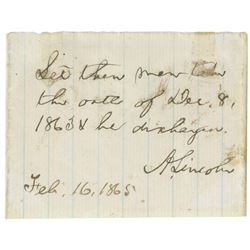 Let this man take
the oath of Dec. 8,
1863 & be discharged.
A. Lincoln
Feb. 16, 1865